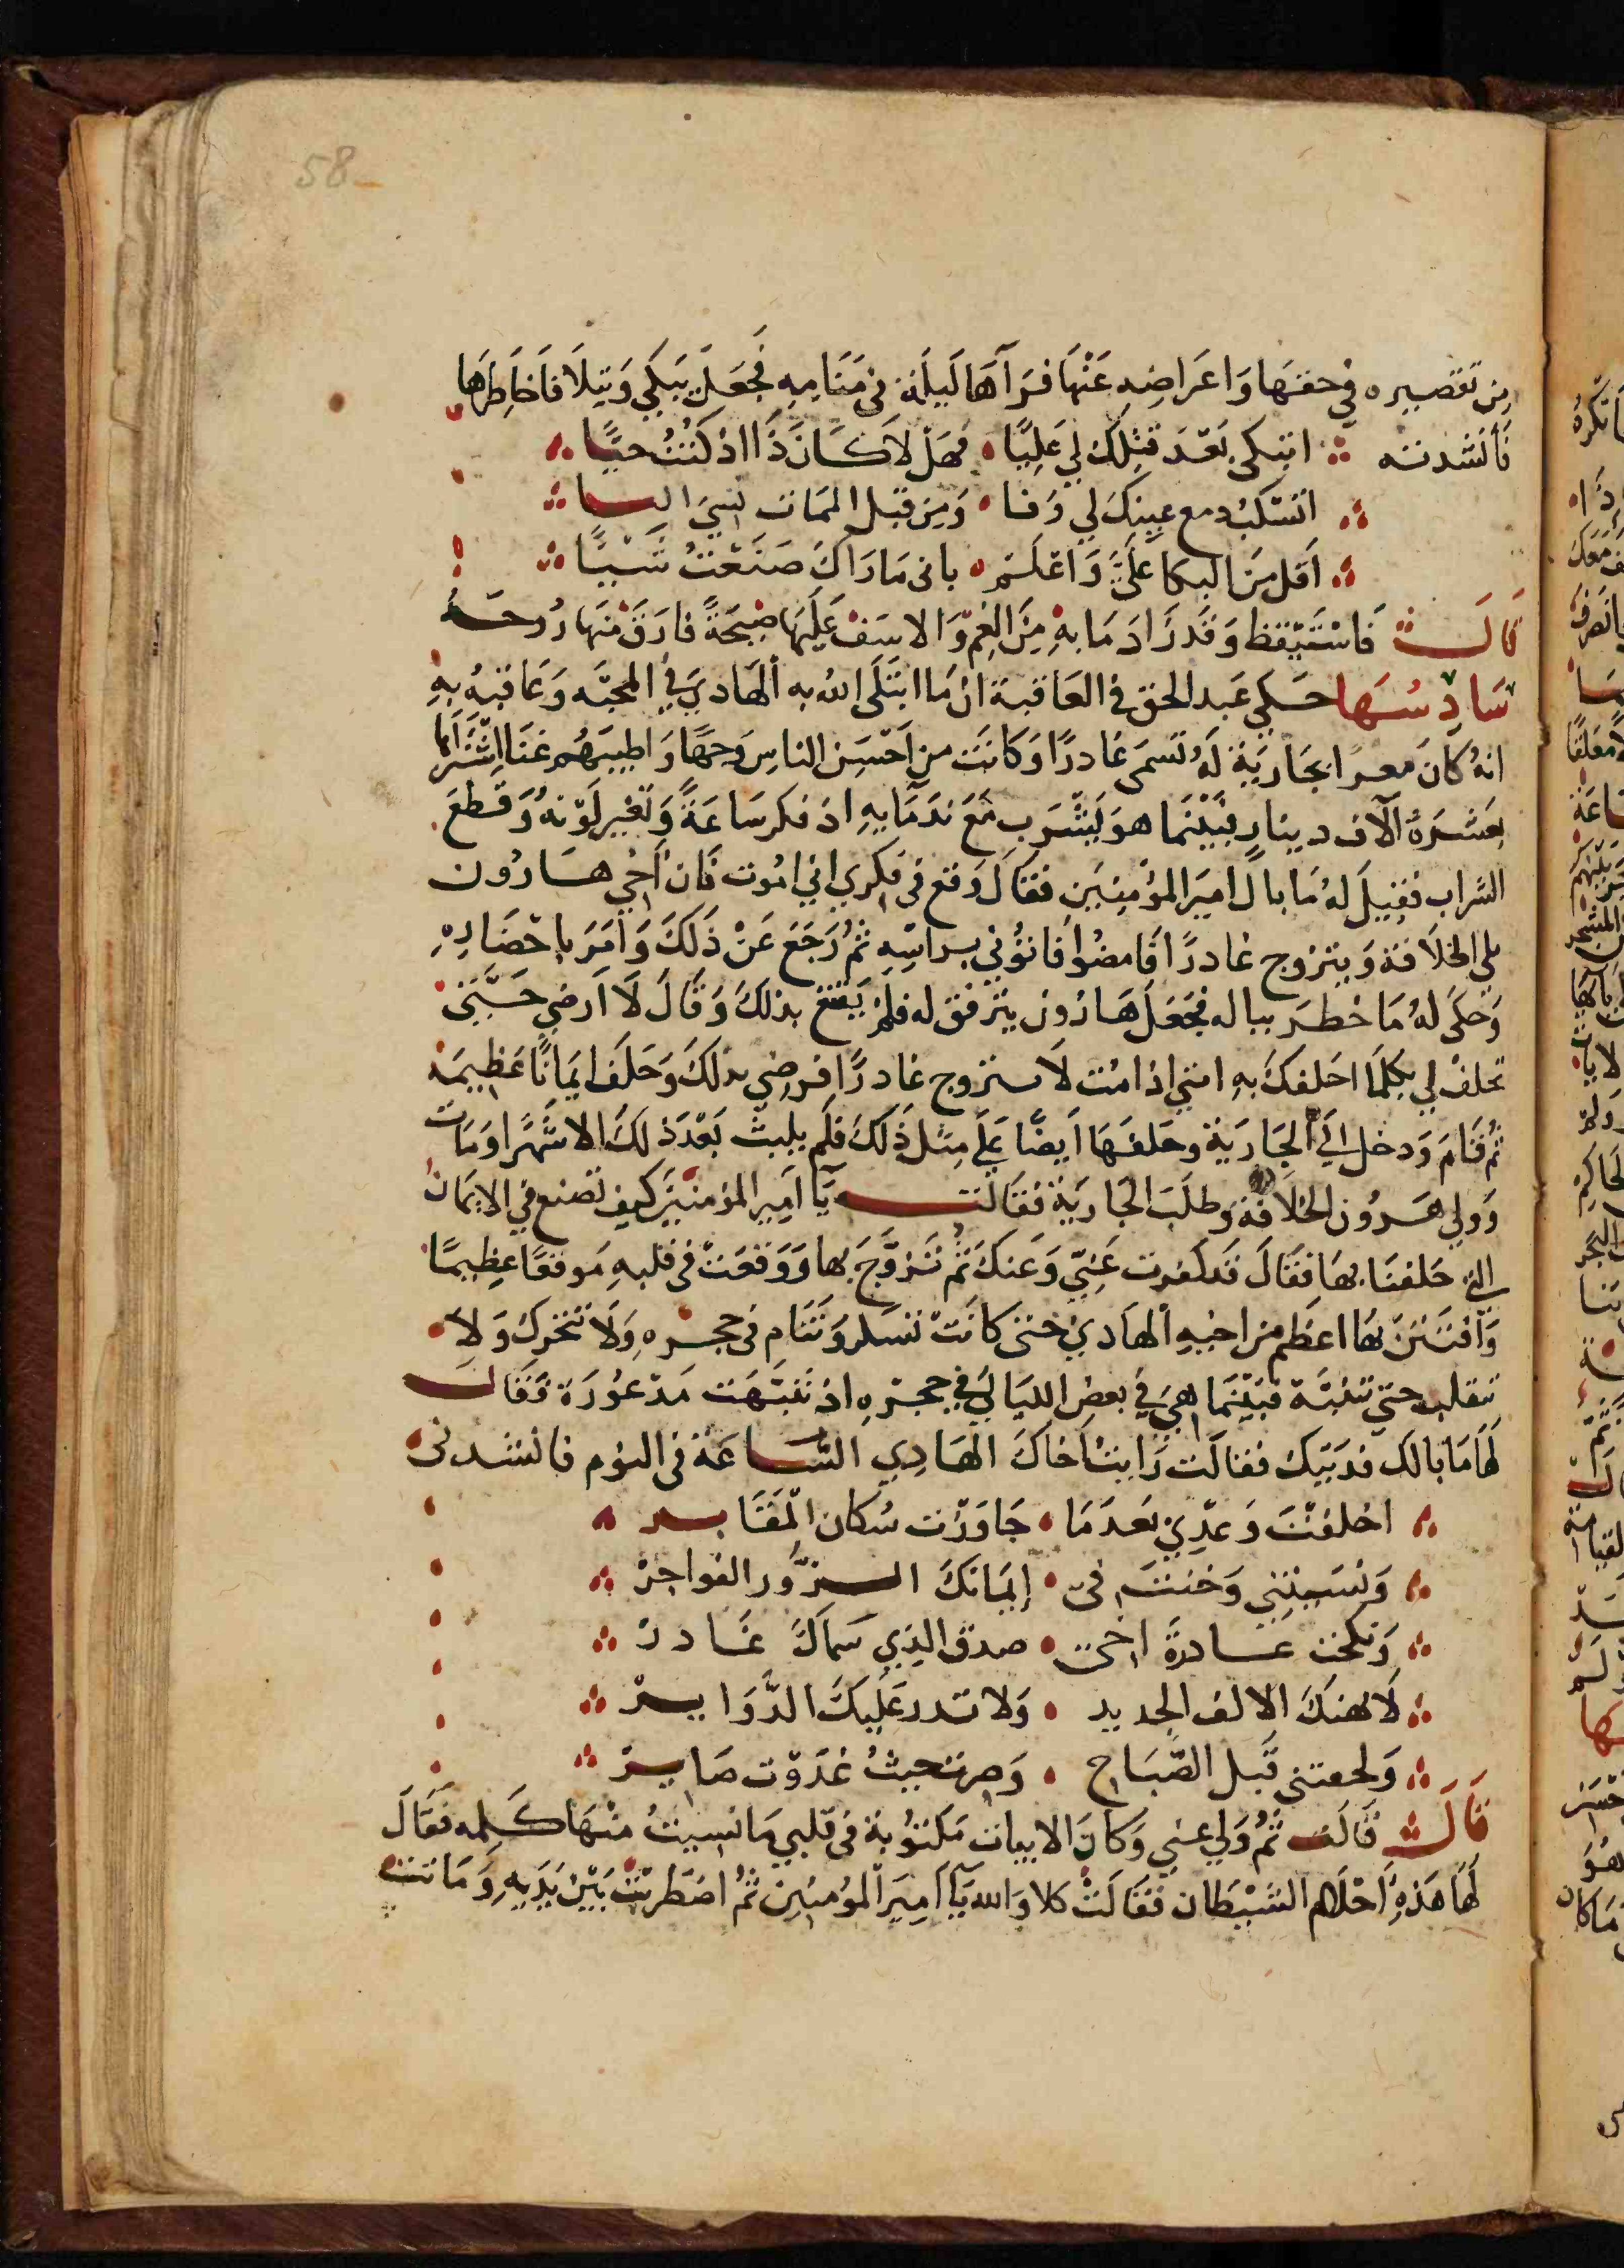 58
من تقصيره في حقها واعراضه عنها فرآها ليلة في منامه فجعل يبكي ويتلافا خاطرها
فأنشدته اتبكي بعد قتلك لي عليّا فهل لا كان ذا اذ كنت حيّا
اتسكب دمع عينك لي وفا ومن قبل الممات
اقل من البكا عليّ واعلم باني ما راك صنعت شيّا
قالت فاستيقظ وقد زاد ما به من الغم والاسف عليها صيحة فارق منها روحه
سادسها حكي عبد الحق في العاقبة ان ما ابتلى الله به الهادي في المحبه وعاقبه به
انه كان مغرا بجارية له تسمى غادرًا وكانت من احسن الناس وجهًا واطيبهم غنا اشتراها
بعشرة الآف دينار فبينما هو يشرب مع ندمايه اذ فكر ساعة وتغير لونه وقطع
الشراب فقيل له ما بال امير المؤمنين فقال وقع في فكري اني اموت فان اخي هارون
يلي الخلافة ويتزوج غادرًا فامضوا فاتوني براسه ثم رجع عن ذلك وامر باحضاره
وحكى له ما خطر بباله فجعل هارون يترفق له فلم يقنع بذلك وقال لا ارضي حتى
تحلف لي بكلما احلفك به انني اذا مت لا تتزوج غادرًا فرضي بذلك وحلف ايمانًا عظيمة
ثم قام ودخل الي الجارية وحلفها ايضًا على مثل ذلك فلم يلبث بعد ذلك الا شهرا ومات
وولي هرون الخلافة وطلب الجارية فقالت يآ امير المؤمنين كيف تصنع في الايمان
التي حلفنا بها فقال قد كفرت عني وعنك ثم تزوج بها ووقعت في قلبه موقعًا عظيمًا
وافتتن بها اعظم من اخيه الهادي حتى كانت تسكر وتنام في حجره ولا تتحرك ولا
تنقلب حتي تنتبه فبينما هي في بعض الليالي في حجره اذ تنبهت مذعورة فقال
لها ما بالك فديتك فقالت رايت اخاك الهادي الساعة في النوم فانشدني
اخلفت وعدي بعدما جاورت سكان المقابر
ونسيتني وحنثت في ايمانك الزور الفواجر
ونكحت غادرة اخي صدق الذي سماك غادر
لا يهنك الالف الجديد ولا تدر عليك الدواير
ولحقتني قبل الصباح وصرت حيث غدوت صاير
قالت قالت ثم ولي عني وكان الابيات مكتوبة في قلبي ما نسيت منها كلمه فقال
لها هذه احلام الشيطان فقالت كلا والله يآ امير المؤمنين ثم اضطربت بين يديه وماتت